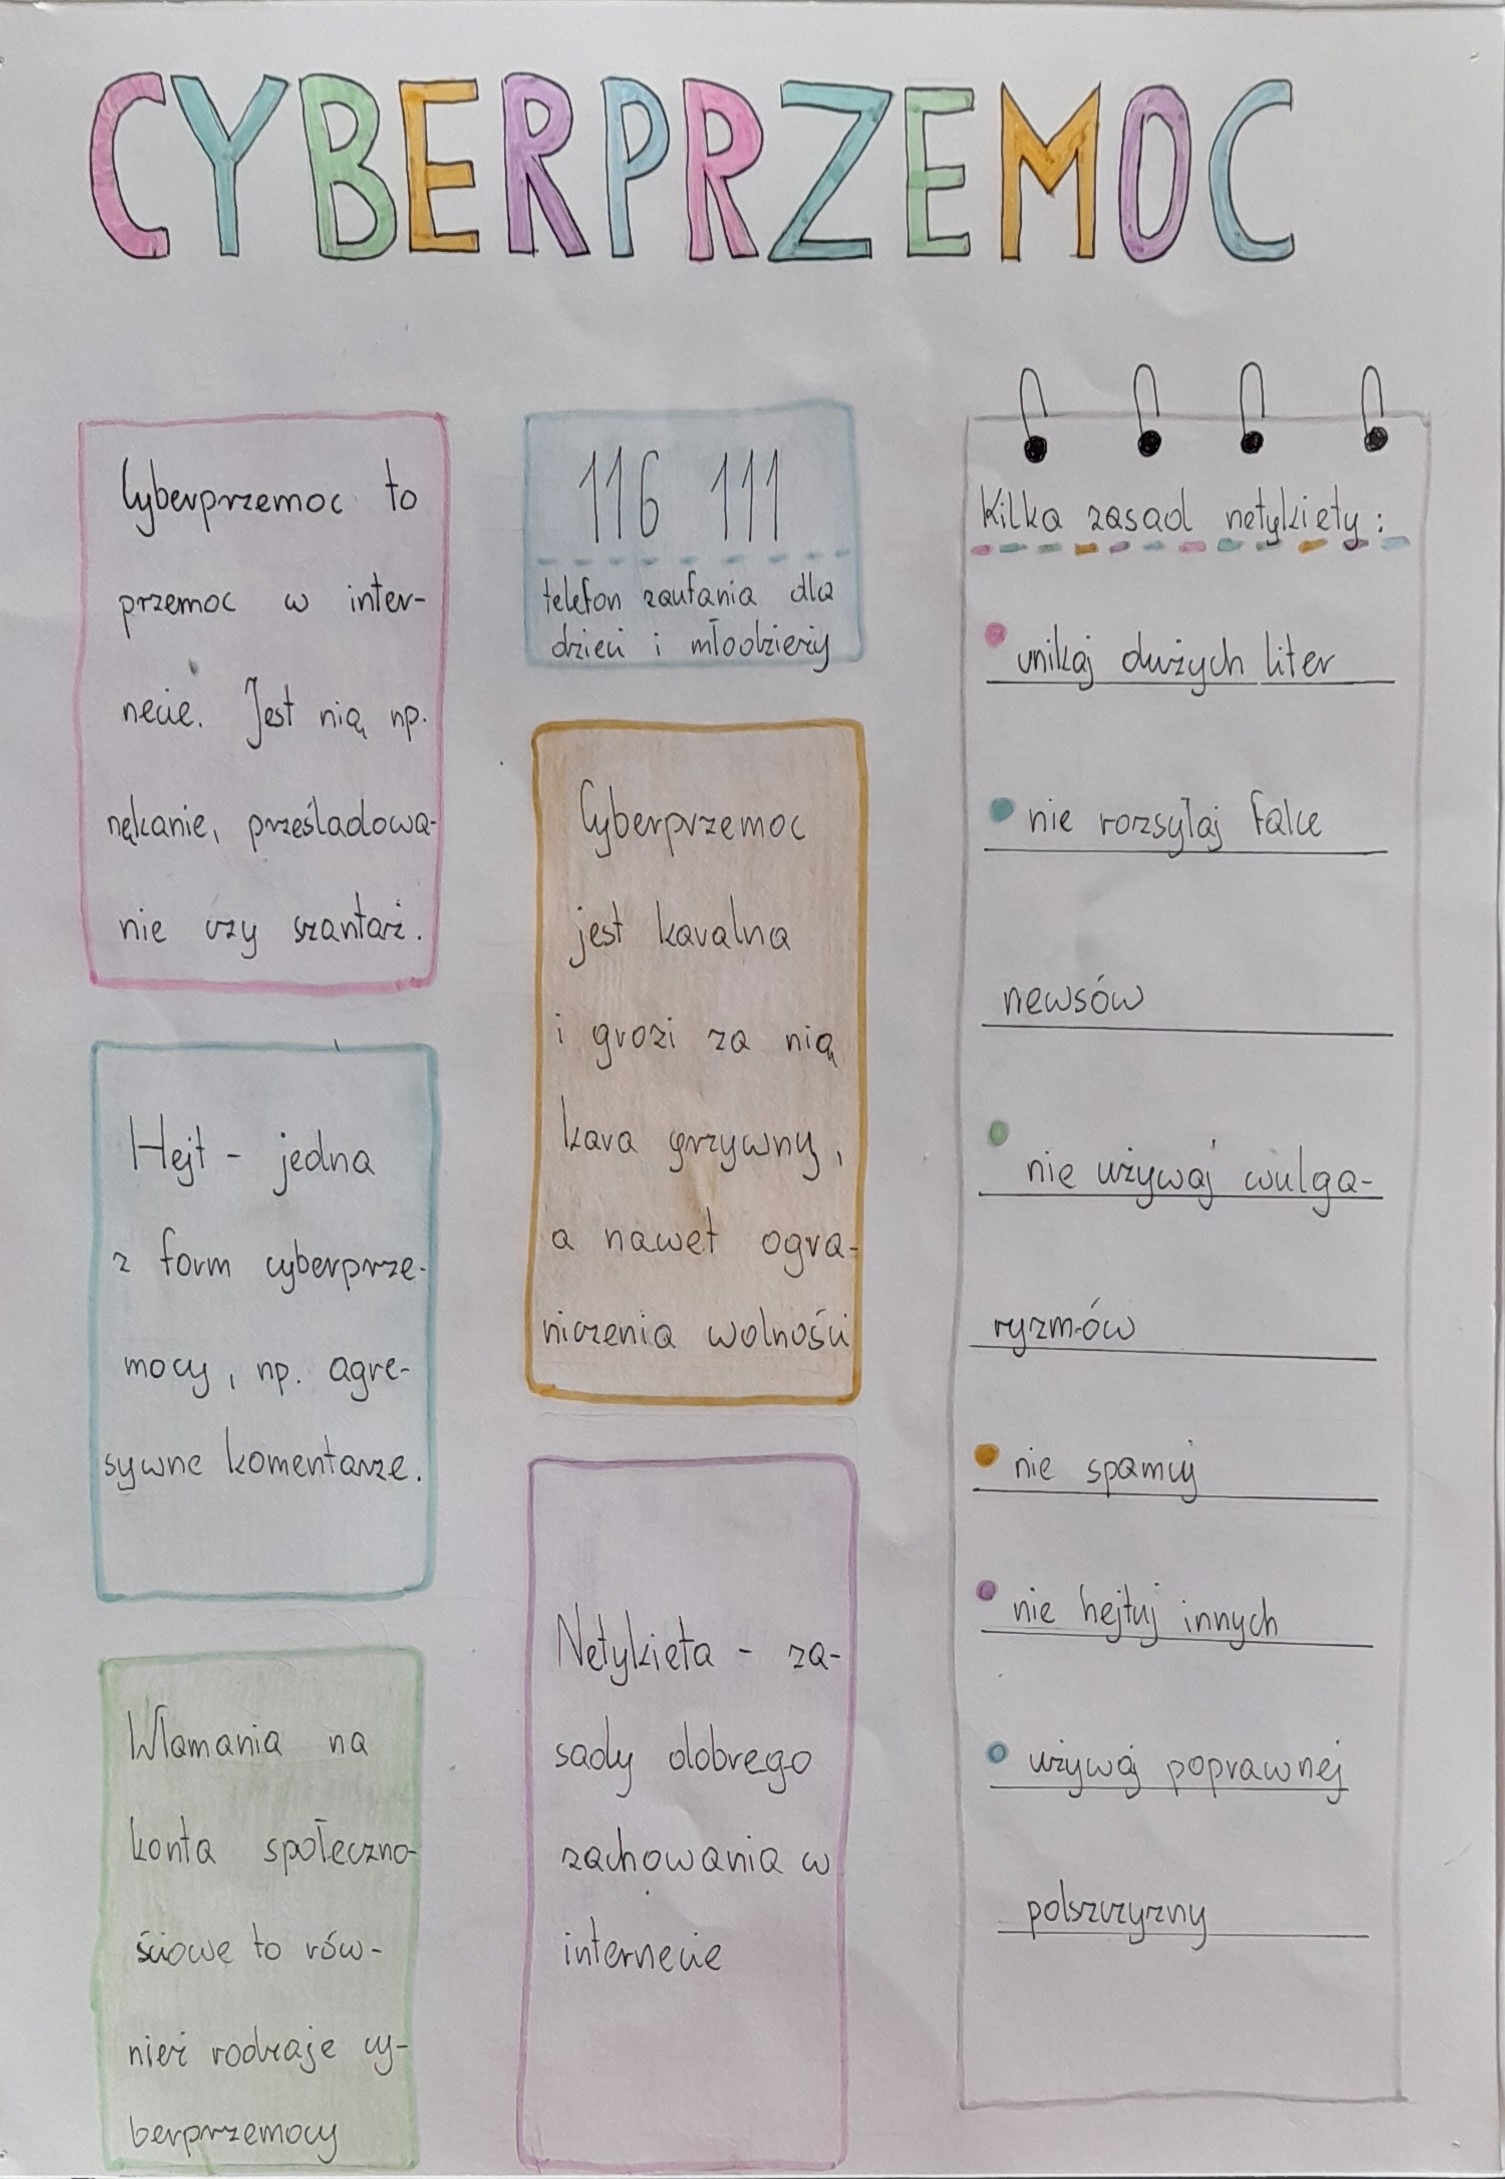 CYBERPRZEMOC
Cyberprzemoc to
przemoc w inter-
necie. Jest nią np.
nękanie, prześladowa-
nie czy szantaż.
Hejt - jedna
z form cyberprze-
mocy, np. agre-
sywne komentarze.
Włamania na
konta społeczno-
ściowe to rów-
nież rodzaje cy-
berprzemocy
116 111
telefon zaufania dla
dzieci i młodzieży
Cyberprzemoc
jest karalna
i grozi za nią
kara grzywny,
a nawet ogra-
niczenia wolności
Netykieta - za-
sady dobrego
zachowania w
internecie
Kilka zasad netykiety:
unikaj dużych liter
nie rozsyłaj fake
newsów
nie używaj wulga-
ryzmów
nie spamuj
nie hejtuj innych
używaj poprawnej
polszczyzny